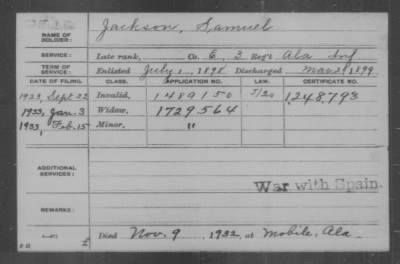 NAME OF SOLDIER: Jackson, Samuel
SERVICE: Late rank, Co. E, 3 Reg't Ala Inf
TERM OF SERVICE: Enlisted July 1, 1898 Discharged Mar 21, 1899
DATE OF FILING. CLASS. APPLICATION NO. LAW. CERTIFICATE NO.
1923, Sept-22 Invalid, 1489150 5/20 1,248,793
1933, Jan. 3 Widow, 1729564
1933, Feb. 15 Minor, "
ADDITIONAL SERVICES:
War with Spain.
REMARKS:
Died Nov. 9, 1932, at Mobile, Ala